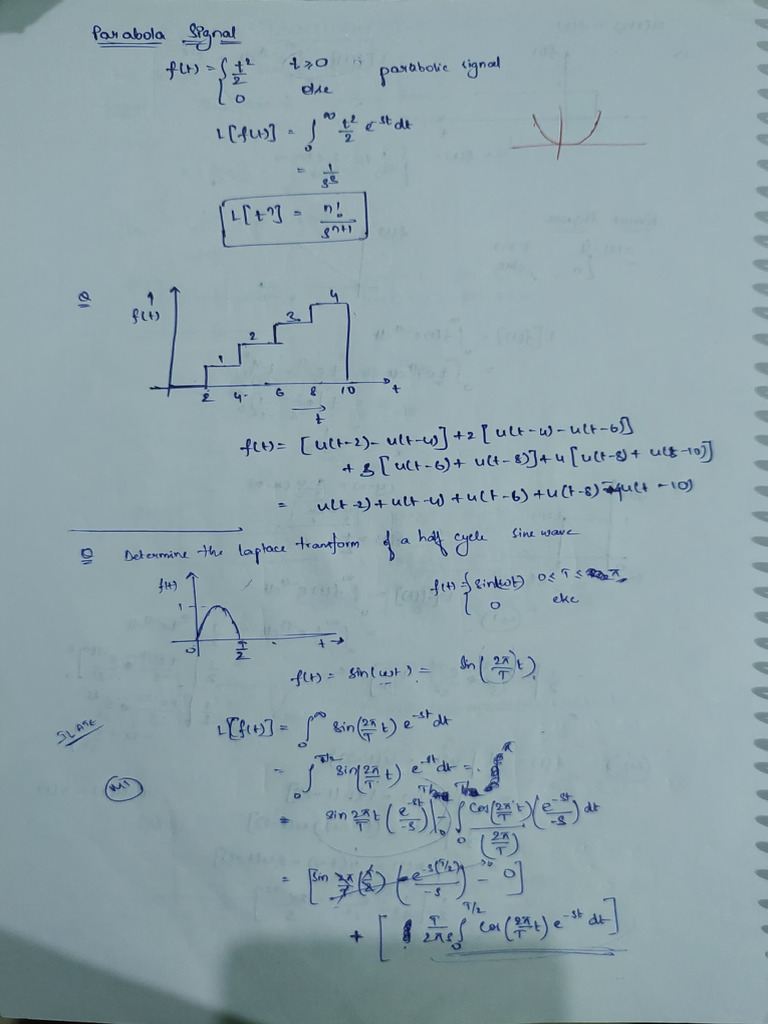 Parabola Signal
f(t) = { t²/2 t ≥ 0 ; parabolic signal
0 else
L[f(t)] = ∫₀^∞ t²/2 e^-st dt
= 1/s³
L[tⁿ] = n!/s^n+1
Q
f(t)
1 2 3 4
2 4 6 8 10 t
t
f(t) = [u(t-2) - u(t-4)] + 2[u(t-4) - u(t-6)]
+ 3[u(t-6) + u(t-8)] + 4[u(t-8) + u(t-10)]
= u(t-2) + u(t-4) + u(t-6) + u(t-8) - 4u(t-10)
Q Determine the laplace transform of a half cycle sine wave
f(t)
f(t) = { sin(ωt) 0 ≤ T ≤ π
0 else
1
0 T/2 t
f(t) = sin(ωt) = sin(2π/T t)
L[f(t)] = ∫₀^∞ sin(2π/T t) e^-st dt
= ∫₀^T/2 sin(2π/T t) e^-st dt =
M1
= sin 2π/T t (e^-st/-s)|₀^T/2 - ∫₀^T/2 cos(2π/T t)/(2π/T) (e^-st/-s) dt
= [sin 2π/T (T/2) (e^-s(T/2)/-s) - 0]
+ [T/2πs ∫₀^T/2 cos(2π/T t) e^-st dt]